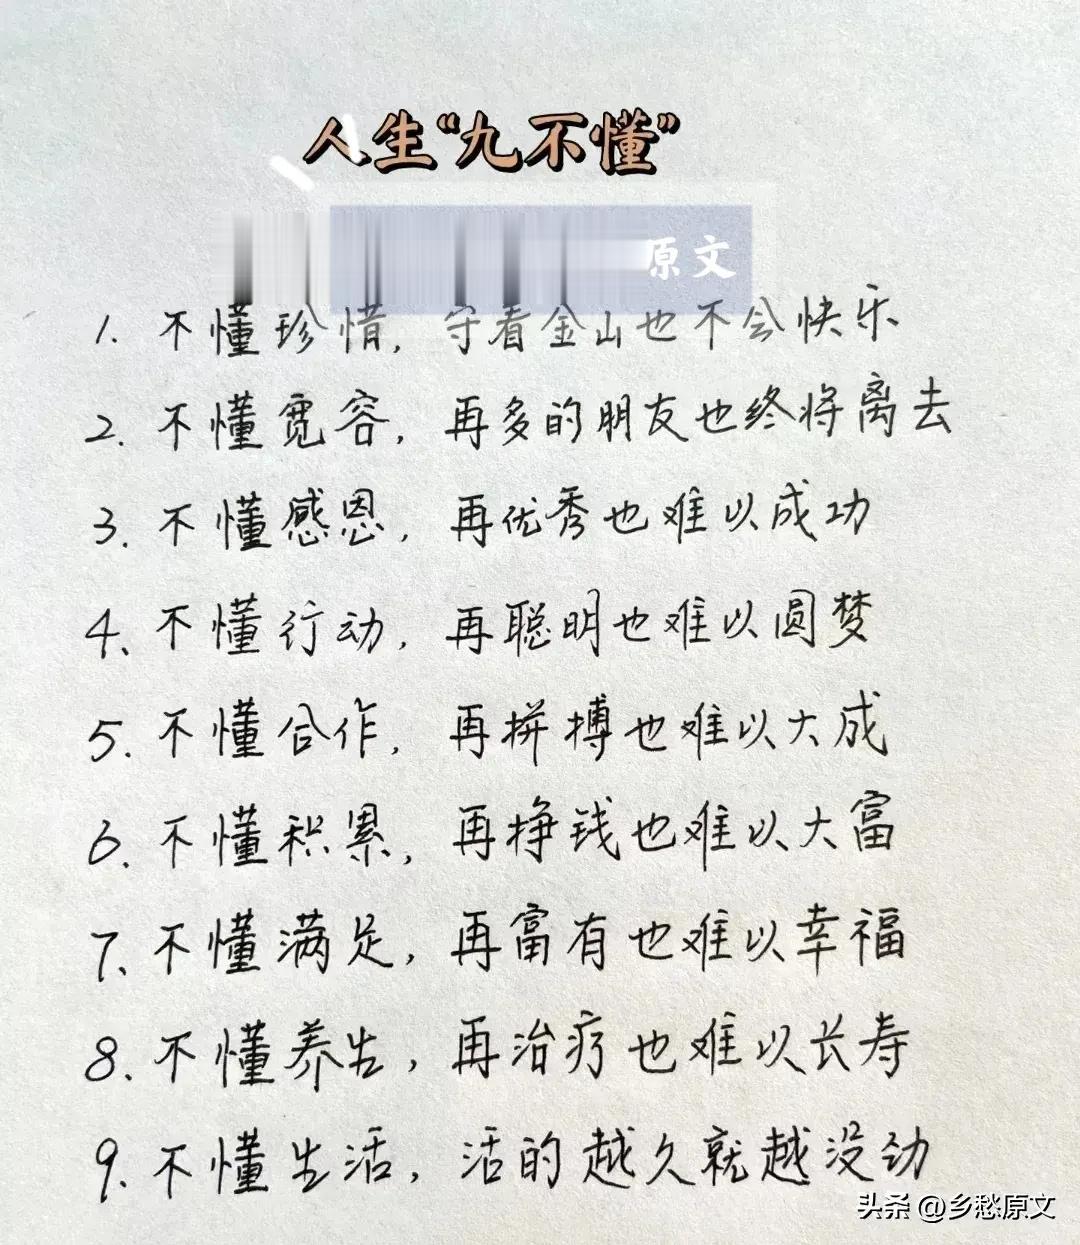 人生“九不懂”
原文
1. 不懂珍惜，守着金山也不会快乐
2. 不懂宽容，再多的朋友也终将离去
3. 不懂感恩，再优秀也难以成功
4、不懂行动，再聪明也难以圆梦
5. 不懂合作，再拼搏也难以大成
6、不懂积累，再挣钱也难以大富
7、不懂满足，再富有也难以幸福
8、不懂养生，再治疗也难以长寿
9、不懂生活，活的越久就越没劲
头条 @乡愁原文